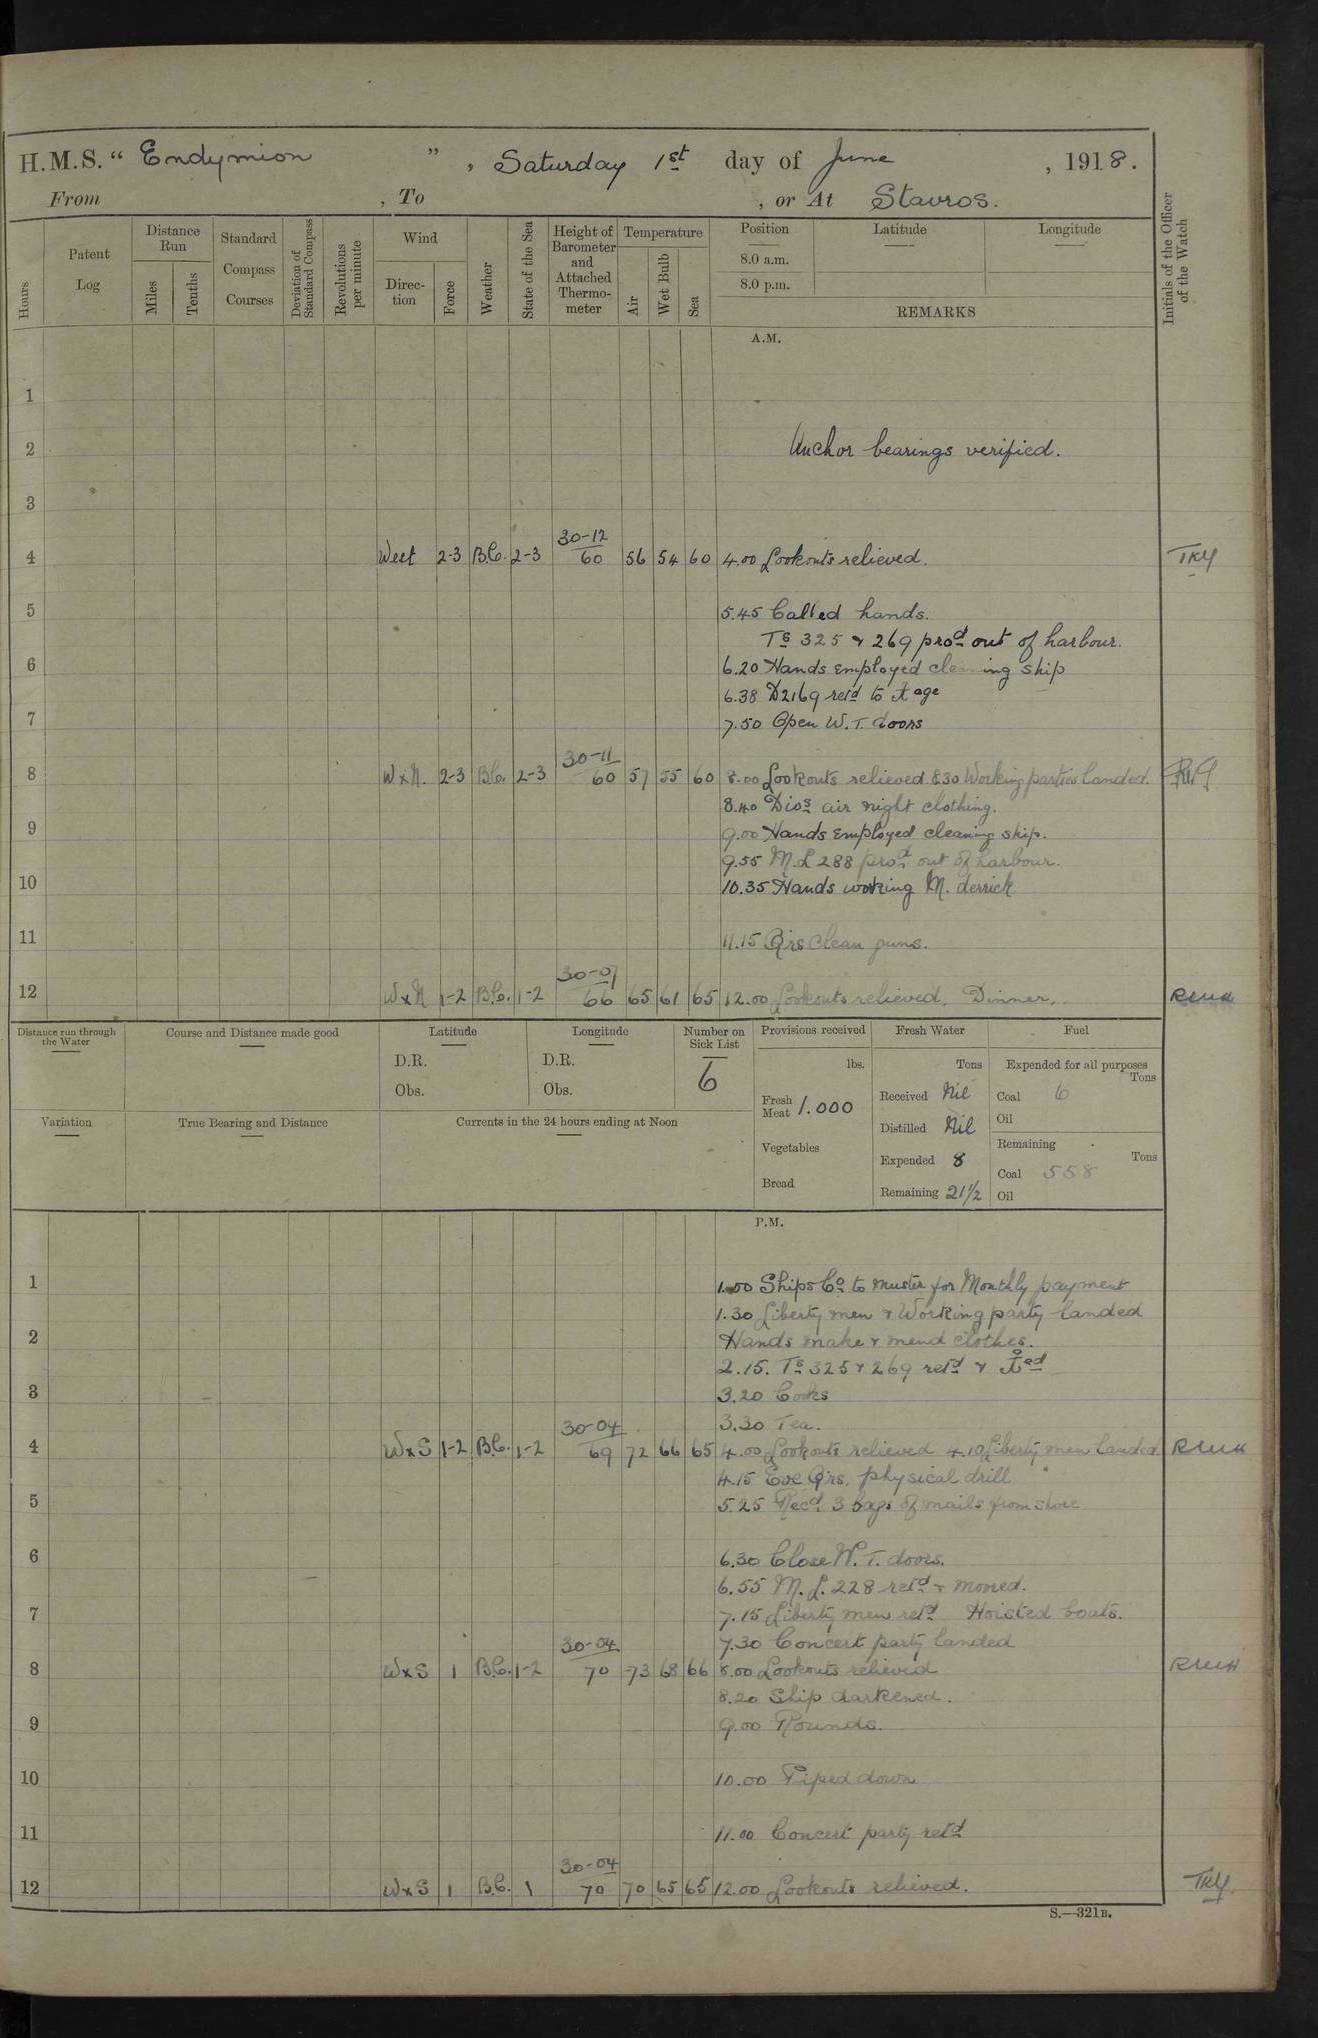 H.M.S. "Endymion", Saturday 1st day of June, 1918.
From , To , or At Stavros.
Hours
Patent Log
Distance Run
Miles
Tenths
Standard Compass Courses
Deviation of Standard Compass
Revolutions per minute
Wind
Direction
Force
Weather
State of the Sea
Height of Barometer and Attached Thermometer
Temperature
Air
Wet Bulb
Sea
Position
8.0 a.m.
8.0 p.m.
Latitude
Longitude
REMARKS
Initials of the Officer of the Watch
A.M.
1
2 Anchor bearings verified.
3
4 West 2-3 B.C. 2-3 30-12 60 56 54 60 4.00 Lookouts relieved. TKY
5 5.45 Called hands.
Ts 325 & 269 procd out of harbour.
6 6.20 Hands employed cleaning ship
6.38 D2169 retd to age
7 7.50 Open W.T. doors
8 W x N. 2-3 B.C. 2-3 30-11 60 57 55 60 8.00 Lookouts relieved. 8.30 Working parties landed.
8.40 Divs air night clothing.
9 9.00 Hands employed cleaning ship.
9.55 M.L 288 procd out of harbour.
10 10.35 Hands working M. derrick
11 11.15 Qrs clean guns.
12 W x N 1-2 B.C. 1-2 30-07 66 65 61 65 12.00 Lookouts relieved, Dinner.
Distance run through the Water
Course and Distance made good
Latitude
D.R.
Obs.
Longitude
D.R.
Obs.
Number on Sick List
6
Provisions received
lbs.
Fresh Meat 1.000
Vegetables
Bread
Fresh Water
Tons
Received Nil
Distilled Nil
Expended 8
Remaining 21½
Fuel
Expended for all purposes
Tons
Coal 6
Oil
Remaining
Tons
Coal 558
Oil
Variation
True Bearing and Distance
Currents in the 24 hours ending at Noon
P.M.
1 1.00 Ships Co to muster for Monthly payment
1.30 Liberty men & Working party landed
2 Hands make & mend clothes.
2.15. Ts 325 & 269 retd &
3 3.20 Cooks
3.30 Tea.
4 W x S 1-2 B.C. 1-2 30-04 69 72 66 65 4.00 Lookouts relieved 4.10 Liberty men landed.
4.15 Eve Qrs. physical drill
5 5.25 Recd 3 bags of mails from shore
6 6.30 Close W.T. doors.
6.55 M.L. 228 retd & moored.
7 7.15 Liberty men retd Hoisted boats.
7.30 Concert party landed
8 W x S 1 B.C. 1-2 30-04 70 73 68 66 8.00 Lookouts relieved
8.20 Ship darkened.
9 9.00 Rounds.
10 10.00 Piped down
11 11.00 Concert party retd
12 W x S 1 B.C. 1 30-04 70 70 65 65 12.00 Lookouts relieved. TKY.
S.—321B.